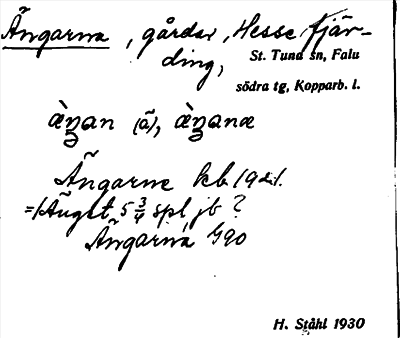 Ängarna, gårdar, Hesse fjär-
ding, St. Tuna sn, Falu
södra tg, Kopparb. l.
àŋan (ã), àŋanæ
Ängarne kb 1921.
=/Änget 5 3/4 spl jb ?
Ängarna G90
H. Ståhl 1930